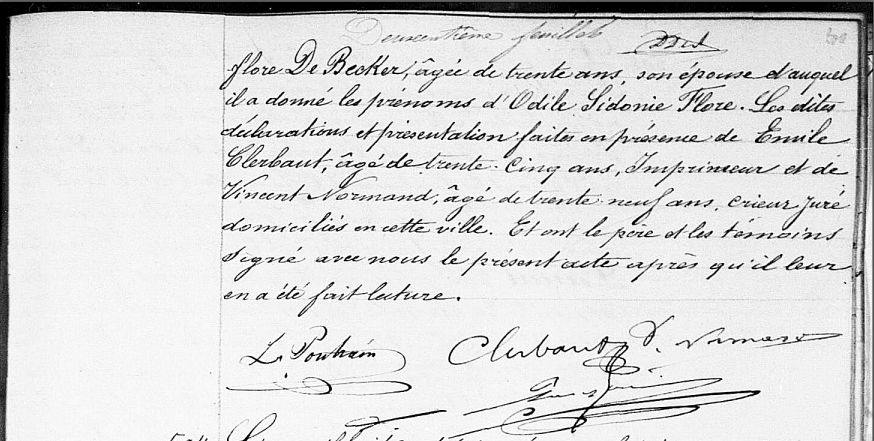 Deuxcentième feuillet
flore De Becker, âgée de trente ans, son épouse et auquel
il a donné les prénoms d'Odile Sidonie Flore. Les dites
déclarations et présentation faites en présence de Emile
Clerbaut, âgé de trente-cinq ans, Imprimeur et de
Vincent Normand, âgé de trente neuf ans, crieur juré
domiciliés en cette ville. Et ont le père et les témoins
signé avec nous le présent acte après qu'il leur
en a été fait lecture.
L. Poulrain Clerbaut V. Normand